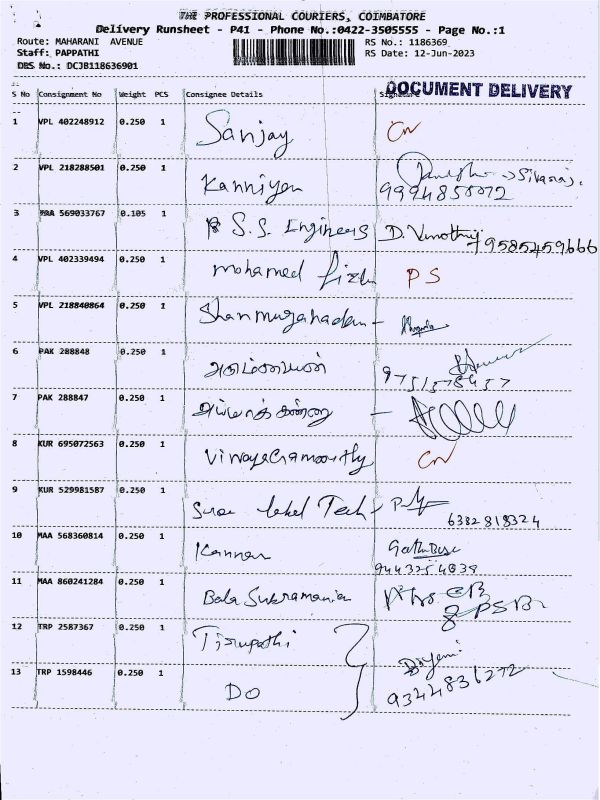 THE PROFESSIONAL COURIERS, COIMBATORE
Delivery Runsheet - P41 - Phone No.:0422-3505555 - Page No.:1
Route: MAHARANI AVENUE RS No.: 1186369
Staff: PAPPATHI RS Date: 12-Jun-2023
DBS No.: DCJB118636901
DOCUMENT DELIVERY
S No Consignment No Weight PCS Consignee Details Signature
1 VPL 402248912 0.250 1 Sanjay CN
2 VPL 218288501 0.250 1 Kanniyan
9994858072
3 569033767 0.105 1 S.S. Engineers D. Vinothni
79585459666
4 VPL 402339494 0.250 1 mohamed PS
5 VPL 218840864 0.250 1
6 PAK 288848 0.250 1
9751578457
7 PAK 288847 0.250 1
8 KUR 695072563 0.250 1 Vinayagamoorthy CN
9 KUR 529981587 0.250 1 Label Tech
6382818324
10 MAA 568360814 0.250 1 Kannan
9443254839
11 MAA 860241284 0.250 1 Bala Subramania
12 TRP 2587367 0.250 1 Tirupathi
13 TRP 1598446 0.250 1 DO
9344836272